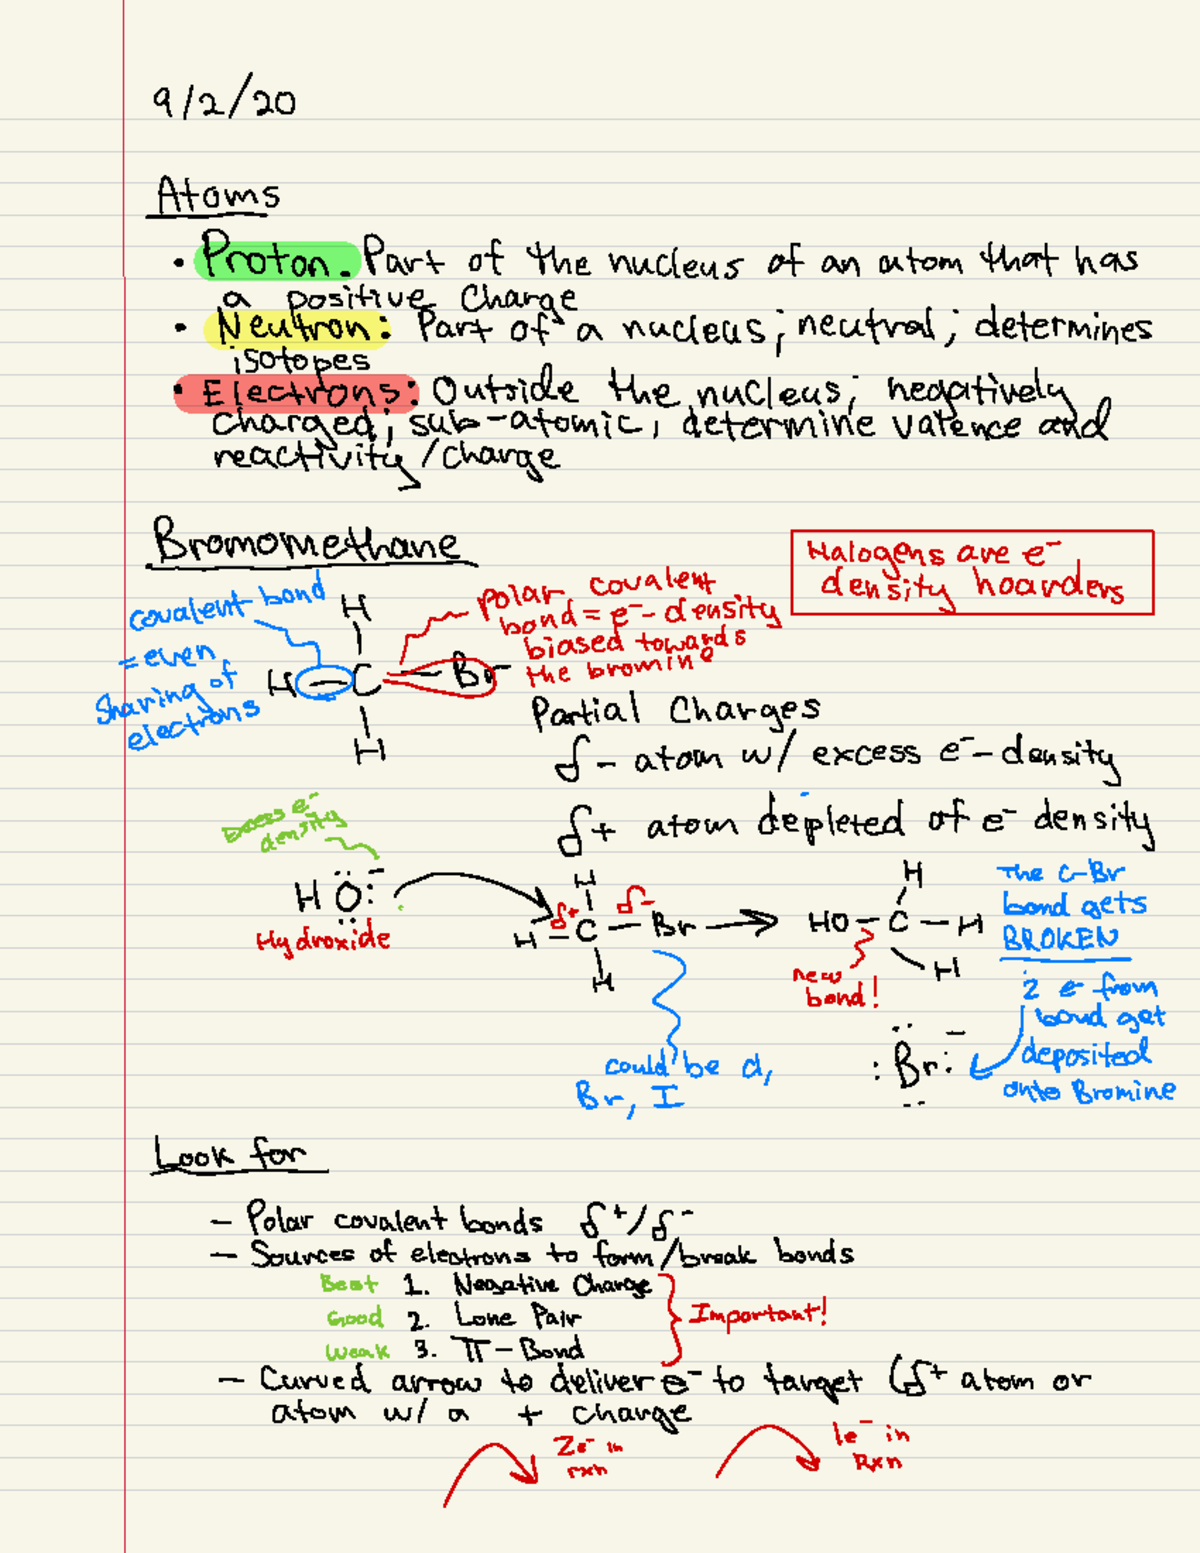 9/2/20
Atoms
• Proton. Part of the nucleus of an atom that has
a positive Charge
• Neutron: Part of a nucleus; neutral; determines
isotopes
• Electrons: Outside the nucleus; negatively
charged; sub-atomic, determine valence and
reactivity/charge
Bromomethane
Halogens are e⁻
density hoarders
covalent bond
= even
Sharing of
electrons
H
H — C — Br
H
Polar covalent
bond = e⁻- density
biased towards
the bromine
Partial Charges
δ - atom w/ excess e⁻- density
δ+ atom depleted of e⁻ density
Excess e⁻
density
H Ö:⁻
Hydroxide
H
δ+ δ-
H — C — Br
H
could be Cl,
Br, I
H
HO — C — H
H
new
bond!
The C-Br
bond gets
BROKEN
2 e⁻ from
bond get
deposited
onto Bromine
:Br:⁻
Look for
- Polar covalent bonds δ⁺/δ⁻
- Sources of electrons to form/break bonds
Best 1. Negative Charge
Good 2. Lone Pair
Weak 3. π-Bond
Important!
- Curved arrow to deliver e⁻ to target (δ⁺ atom or
atom w/ a + charge
2e⁻ in
rxn
1e⁻ in
Rxn